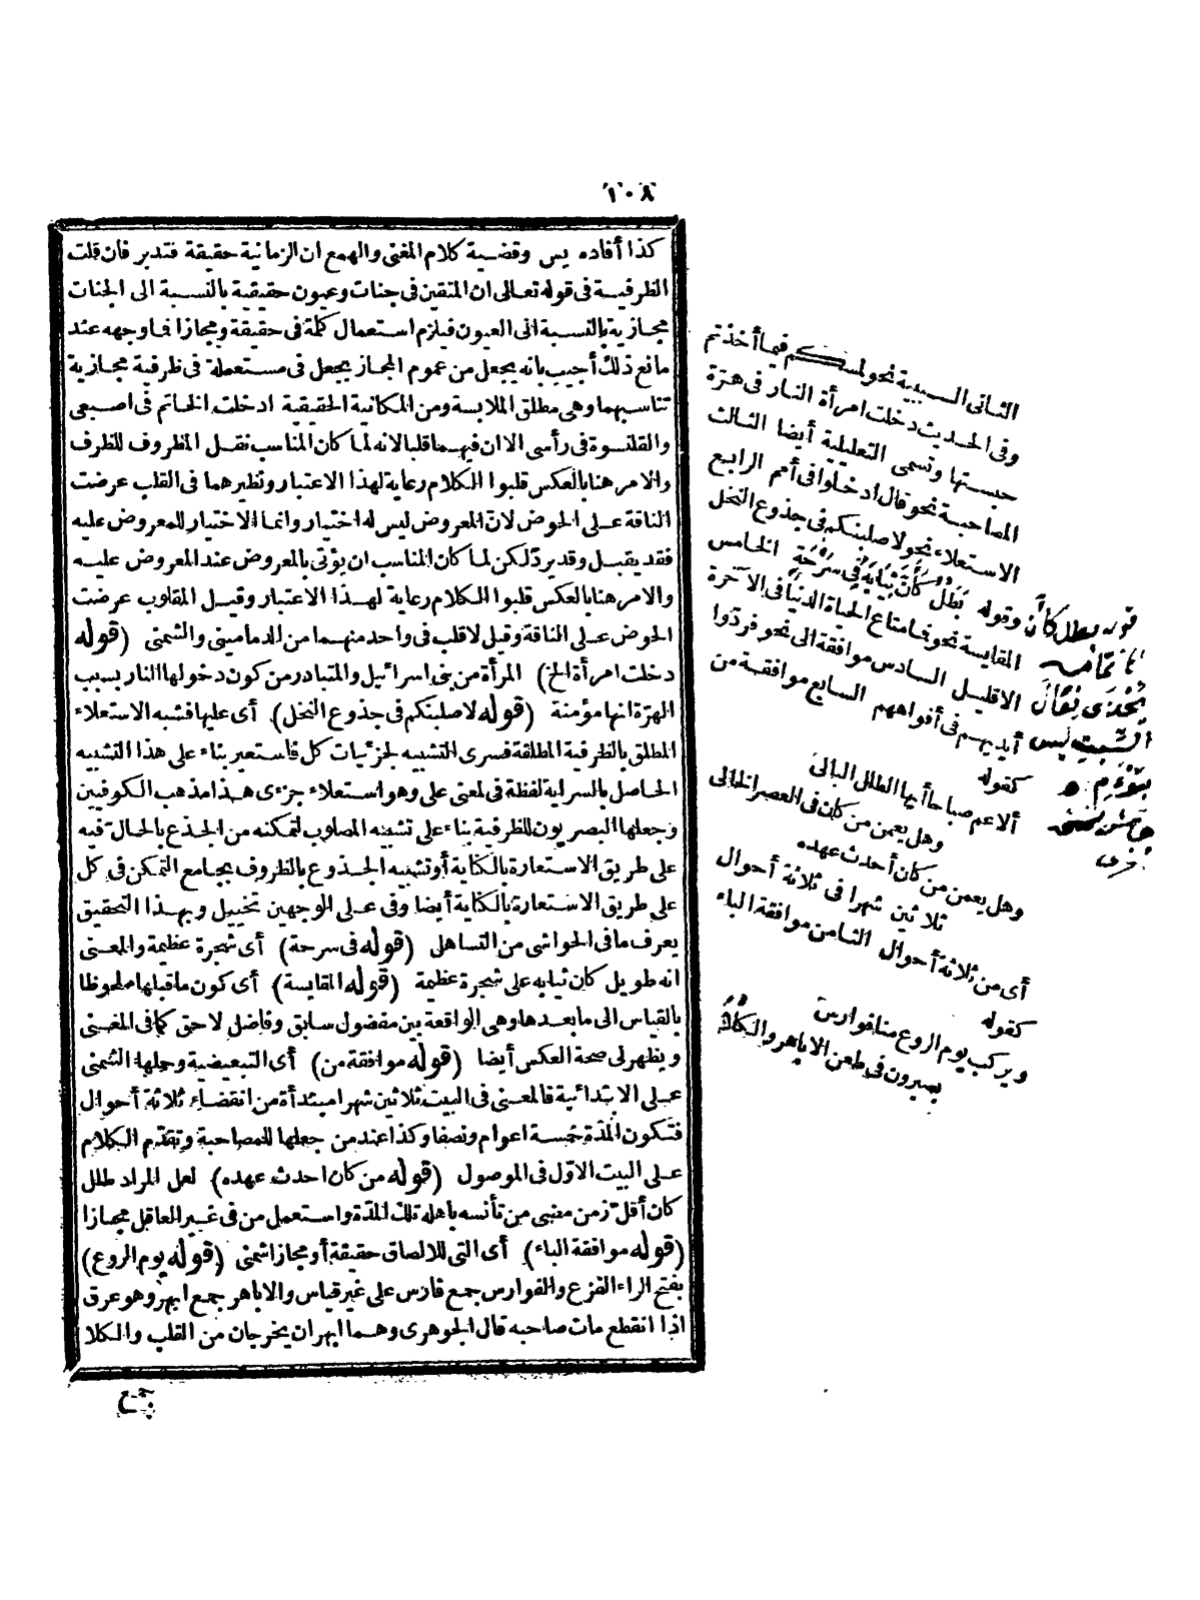 ١٠٨
كذا أفاده يس وقضية كلام المغنى والهمع ان الزمانية حقيقة فتدبر فان قلت
الظرفية فى قوله تعالى ان المتقين فى جنات وعيون حقيقية بالنسبة الى الجنات
مجازية بالنسبة الى العيون فيلزم استعمال كلمة فى حقيقة ومجازا فما وجهه عند
مانع ذلك أجيب بانه يجعل من عموم المجاز بجعل فى مستعملة فى ظرفية مجازية
تناسبهما وهى مطلق الملابسة ومن المكانية الحقيقية ادخلت الخاتم فى اصبعى
والقلنسوة فى رأسى الا ان فيهما قلبا لانه لما كان المناسب نقل المظروف للظرف
والامر هنا بالعكس قلبوا الكلام رعاية لهذا الاعتبار ونظيرهما فى القلب عرضت
الناقة على الحوض لان المعروض ليس له اختيار وانما الاختيار للمعروض عليه
فقد يقبل وقد يرد لكن لما كان المناسب ان يؤتى بالمعروض عند المعروض عليه
والامر هنا بالعكس قلبوا الكلام رعاية لهذا الاعتبار وقيل المقلوب عرضت
الحوض على الناقة وقيل لا قلب فى واحد منهما من الدمامينى والشمنى (قوله
دخلت امرأة الخ) المرأة من بنى اسرائيل والمتبادر من كون دخولها النار بسبب
الهرّة انها مؤمنة (قوله لاصلبنكم فى جذوع النخل) أى عليها فشبه الاستعلاء
المطلق بالظرفية المطلقة فسرى التشبيه لجزئيات كل فاستعير بناء على هذا التشبيه
الحاصل بالسراية لفظة فى لمعنى على وهو استعلاء جزءى هذا مذهب الكوفيين
وجعلها البصريون للظرفية بناء على تشبيه المصلوب لتمكنه من الجذع بالحالّ فيه
على طريق الاستعارة بالكناية أو تشبيه الجذوع بالظروف بجامع التمكن فى كل
على طريق الاستعارة بالكناية أيضا وفى على الوجهين تخييل وبهذا التحقيق
يعرف ما فى الحواشى من التساهل (قوله فى سرحة) أى شجرة عظيمة والمعنى
انه طويل كان ثيابه على شجرة عظيمة (قوله المقايسة) أى كون ما قبلها ملحوظا
بالقياس الى ما بعدها وهى الواقعة بين مفضول سابق وفاضل لاحق كما فى المغنى
ويظهر لى صحة العكس أيضا (قوله موافقة من) أى التبعيضية وحملها الشمنى
على الابتدائية فالمعنى فى البيت ثلاثين شهرا مبتدأة من انقضاء ثلاثة أحوال
فتكون المدّة خمسة اعوام ونصفا وكذا عند من جعلها للمصاحبة وتقدّم الكلام
على البيت الاوّل فى الموصول (قوله من كان احدث عهده) لعل المراد طلل
كان أقلّ زمن مضى من تأنسه باهله تلك المدّة واستعمل من فى غير العاقل مجازا
(قوله موافقة الباء) أى التى للالصاق حقيقة أو مجازا شمنى (قوله يوم الروع)
بفتح الراء الفزع والفوارس جمع فارس على غير قياس والاباهر جمع ابهر وهو عرق
اذا انقطع مات صاحبه قال الجوهرى وهما ابهران يخرجان من القلب والكلا
جمع
الثانى السببية نحو لمسكم فيما أخذتم
وفى الحديث دخلت امرأة النار فى هرّة
حبستها وتسمى التعليلية أيضا الثالث
المصاحبة نحو قال ادخلوا فى أمم الرابع
الاستعلاء نحو لاصلبنكم فى جذوع النخل
وقوله بَطَلٌ كَأَنَّ ثِيَابَهُ فِى سَرْحَةٍ الخامس
المقايسة نحو فما متاع الحياة الدنيا فى الآخرة
الا قليل السادس موافقة الى نحو فردّوا
أيديهم فى أفواههم السابع موافقة من
كقوله
ألا عم صباحا أيها الطلل البالى
وهل يعمن من كان فى العصر الخالى
وهل يعمن من كان أحدث عهده
ثلاثين شهرا فى ثلاثة أحوال
أى من ثلاثة أحوال الثامن موافقة الباء
كقوله
ويركب يوم الروع منا فوارس
بصيرون فى طعن الاباهر والكلا
قوله بطل كأن
يُحْذَى نِعَالَ
السِّبْتِ ليس
بتوءم